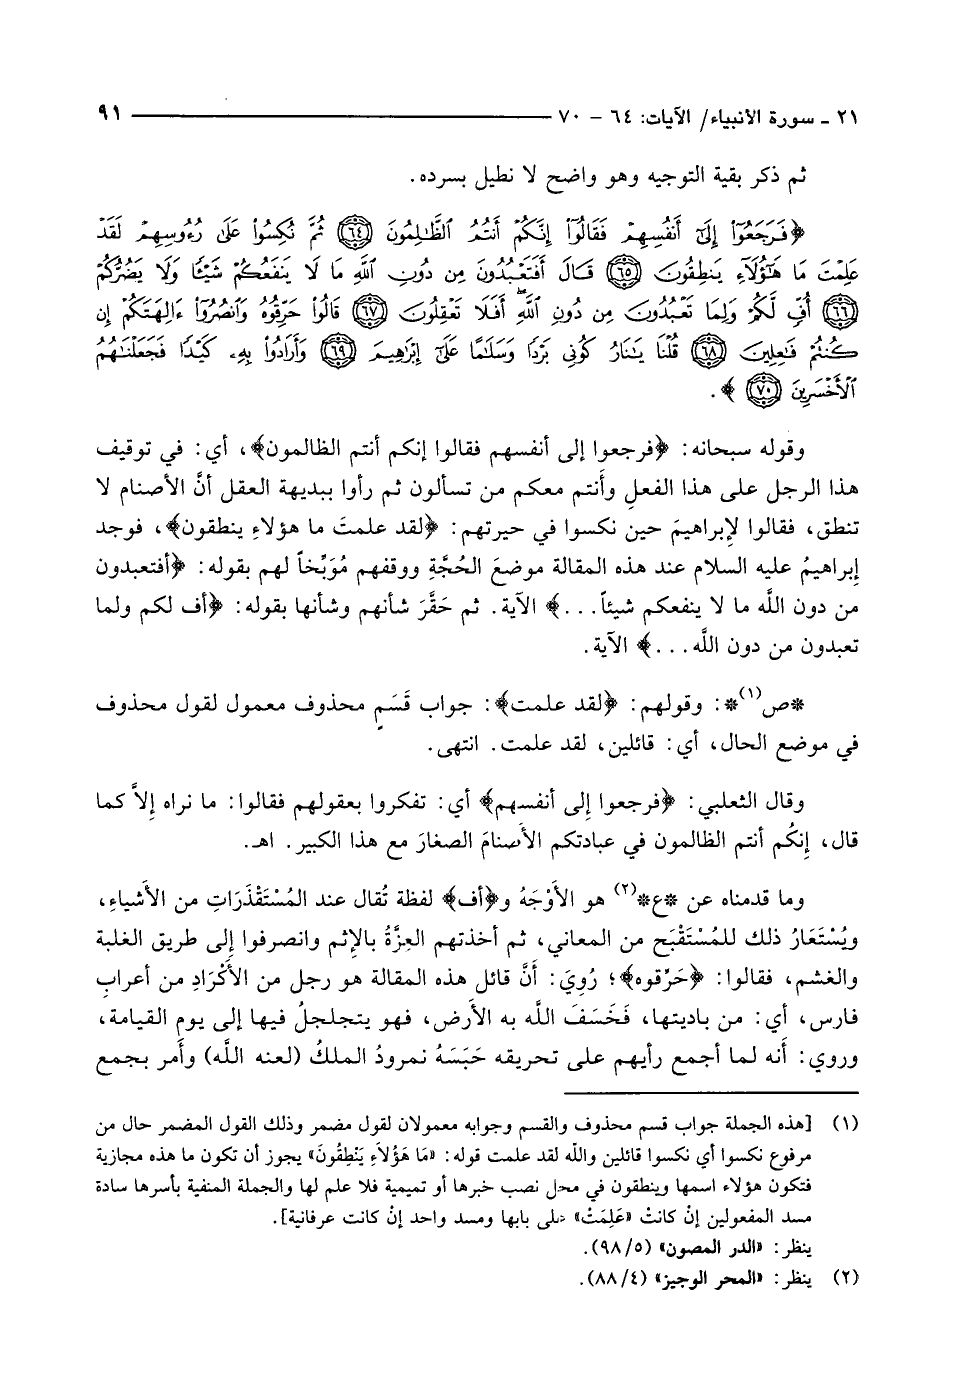 ٢١ ـ سورة الأنبياء/ الآيات: ٦٤ - ٧٠ ٩١
ثم ذكر بقية التوجيه وهو واضح لا نطيل بسرده.
﴿فَرَجَعُوٓاْ إِلَىٰٓ أَنفُسِهِمْ فَقَالُوٓاْ إِنَّكُمْ أَنتُمُ ٱلظَّٰلِمُونَ ٦٤ ثُمَّ نُكِسُواْ عَلَىٰ رُءُوسِهِمْ لَقَدْ
عَلِمْتَ مَا هَٰٓؤُلَآءِ يَنطِقُونَ ٦٥ قَالَ أَفَتَعْبُدُونَ مِن دُونِ ٱللَّهِ مَا لَا يَنفَعُكُمْ شَيْـًٔا وَلَا يَضُرُّكُمْ
٦٦ أُفٍّ لَّكُمْ وَلِمَا تَعْبُدُونَ مِن دُونِ ٱللَّهِۖ أَفَلَا تَعْقِلُونَ ٦٧ قَالُواْ حَرِّقُوهُ وَٱنصُرُوٓاْ ءَالِهَتَكُمْ إِن
كُنتُمْ فَٰعِلِينَ ٦٨ قُلْنَا يَٰنَارُ كُونِي بَرْدًا وَسَلَٰمًا عَلَىٰٓ إِبْرَٰهِيمَ ٦٩ وَأَرَادُواْ بِهِۦ كَيْدًا فَجَعَلْنَٰهُمُ
ٱلْأَخْسَرِينَ ٧٠﴾.
وقوله سبحانه: ﴿فرجعوا إلى أنفسهم فقالوا إنكم أنتم الظالمون﴾، أي: في توقيف
هذا الرجل على هذا الفعلِ وأنتم معكم من تسألون ثم رأوا ببديهة العقل أنَّ الأصنام لا
تنطق، فقالوا لإبراهيمَ حين نكسوا في حيرتهم: ﴿لقد علمتَ ما هؤلاءِ ينطقون﴾، فوجد
إبراهيمُ عليه السلام عند هذه المقالة موضعَ الحُجَّةِ ووقفهم مُوَبِّخاً لهم بقوله: ﴿أفتعبدون
من دون اللَّه ما لا ينفعكم شيئاً...﴾ الآية. ثم حَقَّرَ شأنهم وشأنها بقوله: ﴿أف لكم ولما
تعبدون من دون اللَّه...﴾ الآية.
*ص(١)*: وقولهم: ﴿لقد علمت﴾: جواب قَسَمٍ محذوف معمول لقول محذوف
في موضع الحال، أي: قائلين، لقد علمت. انتهى.
وقال الثعلبي: ﴿فرجعوا إلى أنفسهم﴾ أي: تفكروا بعقولهم فقالوا: ما نراه إلاَّ كما
قال، إنكُم أنتم الظالمون في عبادتكم الأصنامَ الصغارَ مع هذا الكبير. اهـ.
وما قدمناه عن *ع*(٢) هو الأَوْجَهُ و﴿أف﴾ لفظة تُقال عند المُسْتَقْذَرَاتِ من الأشياءِ،
ويُسْتَعَارُ ذلك للمُسْتَقْبَحِ من المعاني، ثم أخذتهم العِزَّةُ بالإثم وانصرفوا إلى طريق الغلبة
والغشم، فقالوا: ﴿حَرِّقوه﴾؛ رُوِيَ: أنَّ قائل هذه المقالة هو رجل من الأَكْرَادِ من أعرابِ
فارس، أي: من باديتها، فَخَسَفَ اللَّه به الأرض، فهو يتجلجلُ فيها إلى يوم القيامة،
وروي: أنه لما أجمع رأيهم على تحريقه حَبَسَهُ نمرودُ الملكُ (لعنه اللَّه) وأمر بجمع
(١) [هذه الجملة جواب قسم محذوف والقسم وجوابه معمولان لقول مضمر وذلك القول المضمر حال من
مرفوع نكسوا أي نكسوا قائلين واللَّه لقد علمت قوله: «مَا هَؤُلاَءِ يَنْطِقُونَ» يجوز أن تكون ما هذه مجازية
فتكون هؤلاء اسمها وينطقون في محل نصب خبرها أو تميمية فلا علم لها والجملة المنفية بأسرها سادة
مسد المفعولين إنْ كانتْ «عَلِمَتْ» على بابها ومسد واحد إنْ كانت عرفانية].
ينظر: «الدر المصون» (٥/ ٩٨).
(٢) ينظر: «المحر الوجيز» (٤/ ٨٨).